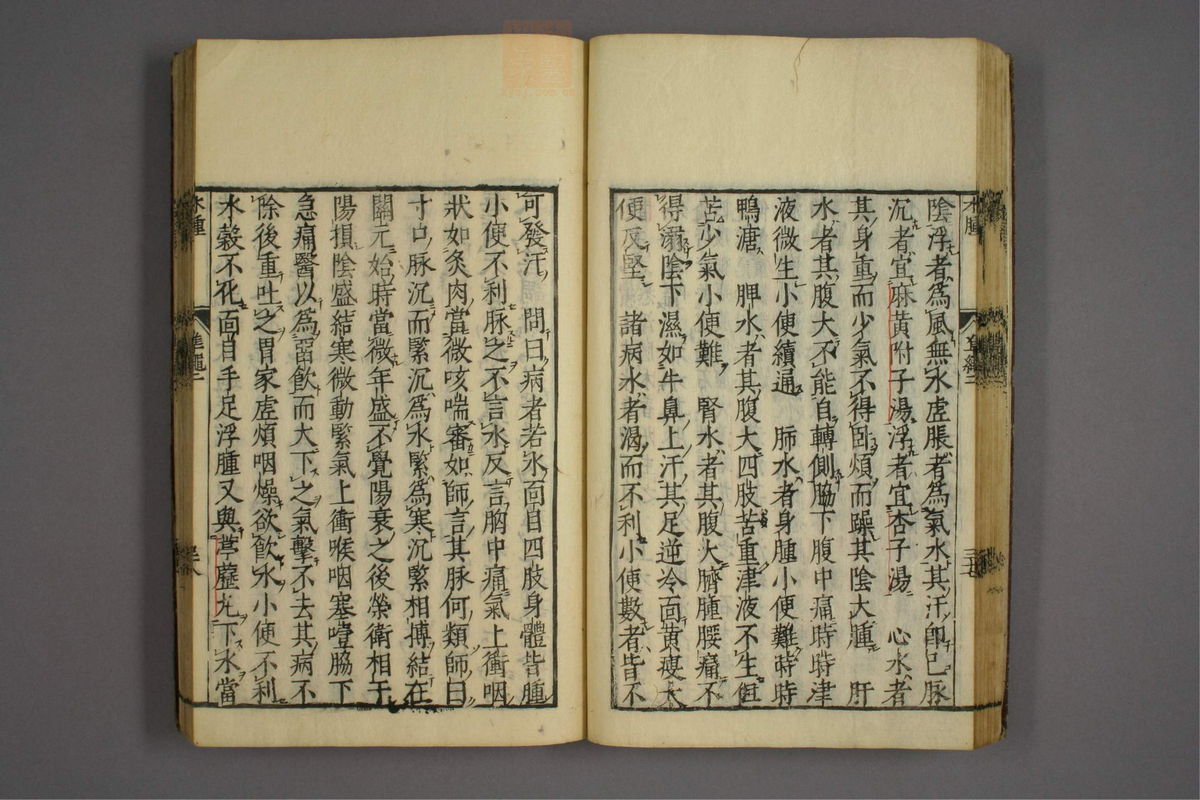 陰浮者爲風無水虛脹者爲氣水其汗卽已脉
沉者宜麻黃附子湯浮者宜杏子湯　心水者
其身重而少氣不得臥煩而躁其陰大腫　肝
水者其腹大不能自轉側脇下腹中痛時時津
液微生小便續通　肺水者身腫小便難時時
鴨溏　脾水者其腹大四肢苦重津液不生但
苦少氣小便難　腎水者其腹大臍腫腰痛不
得溺陰下濕如牛鼻上汗其足逆冷面黃瘦大
便反堅　諸病水者渴而不利小便數者皆不
可發汗　問曰病者若水面目四肢身體皆腫
小便不利脉之不言水反言胸中痛氣上衝咽
狀如炙肉當微咳喘審如師言其脉何類師曰
寸口脉沉而緊沉爲水緊爲寒沉緊相搏結在
關元始時當微年盛不覺陽衰之後榮衛相干
陽損陰盛結寒微動緊氣上衝喉咽塞噎脇下
急痛醫以爲留飲而大下之氣擊不去其病不
除後重吐之胃家虛煩咽燥欲飲水小便不利
水穀不化面目手足浮腫又與葶藶丸下水當
水腫
準繩二